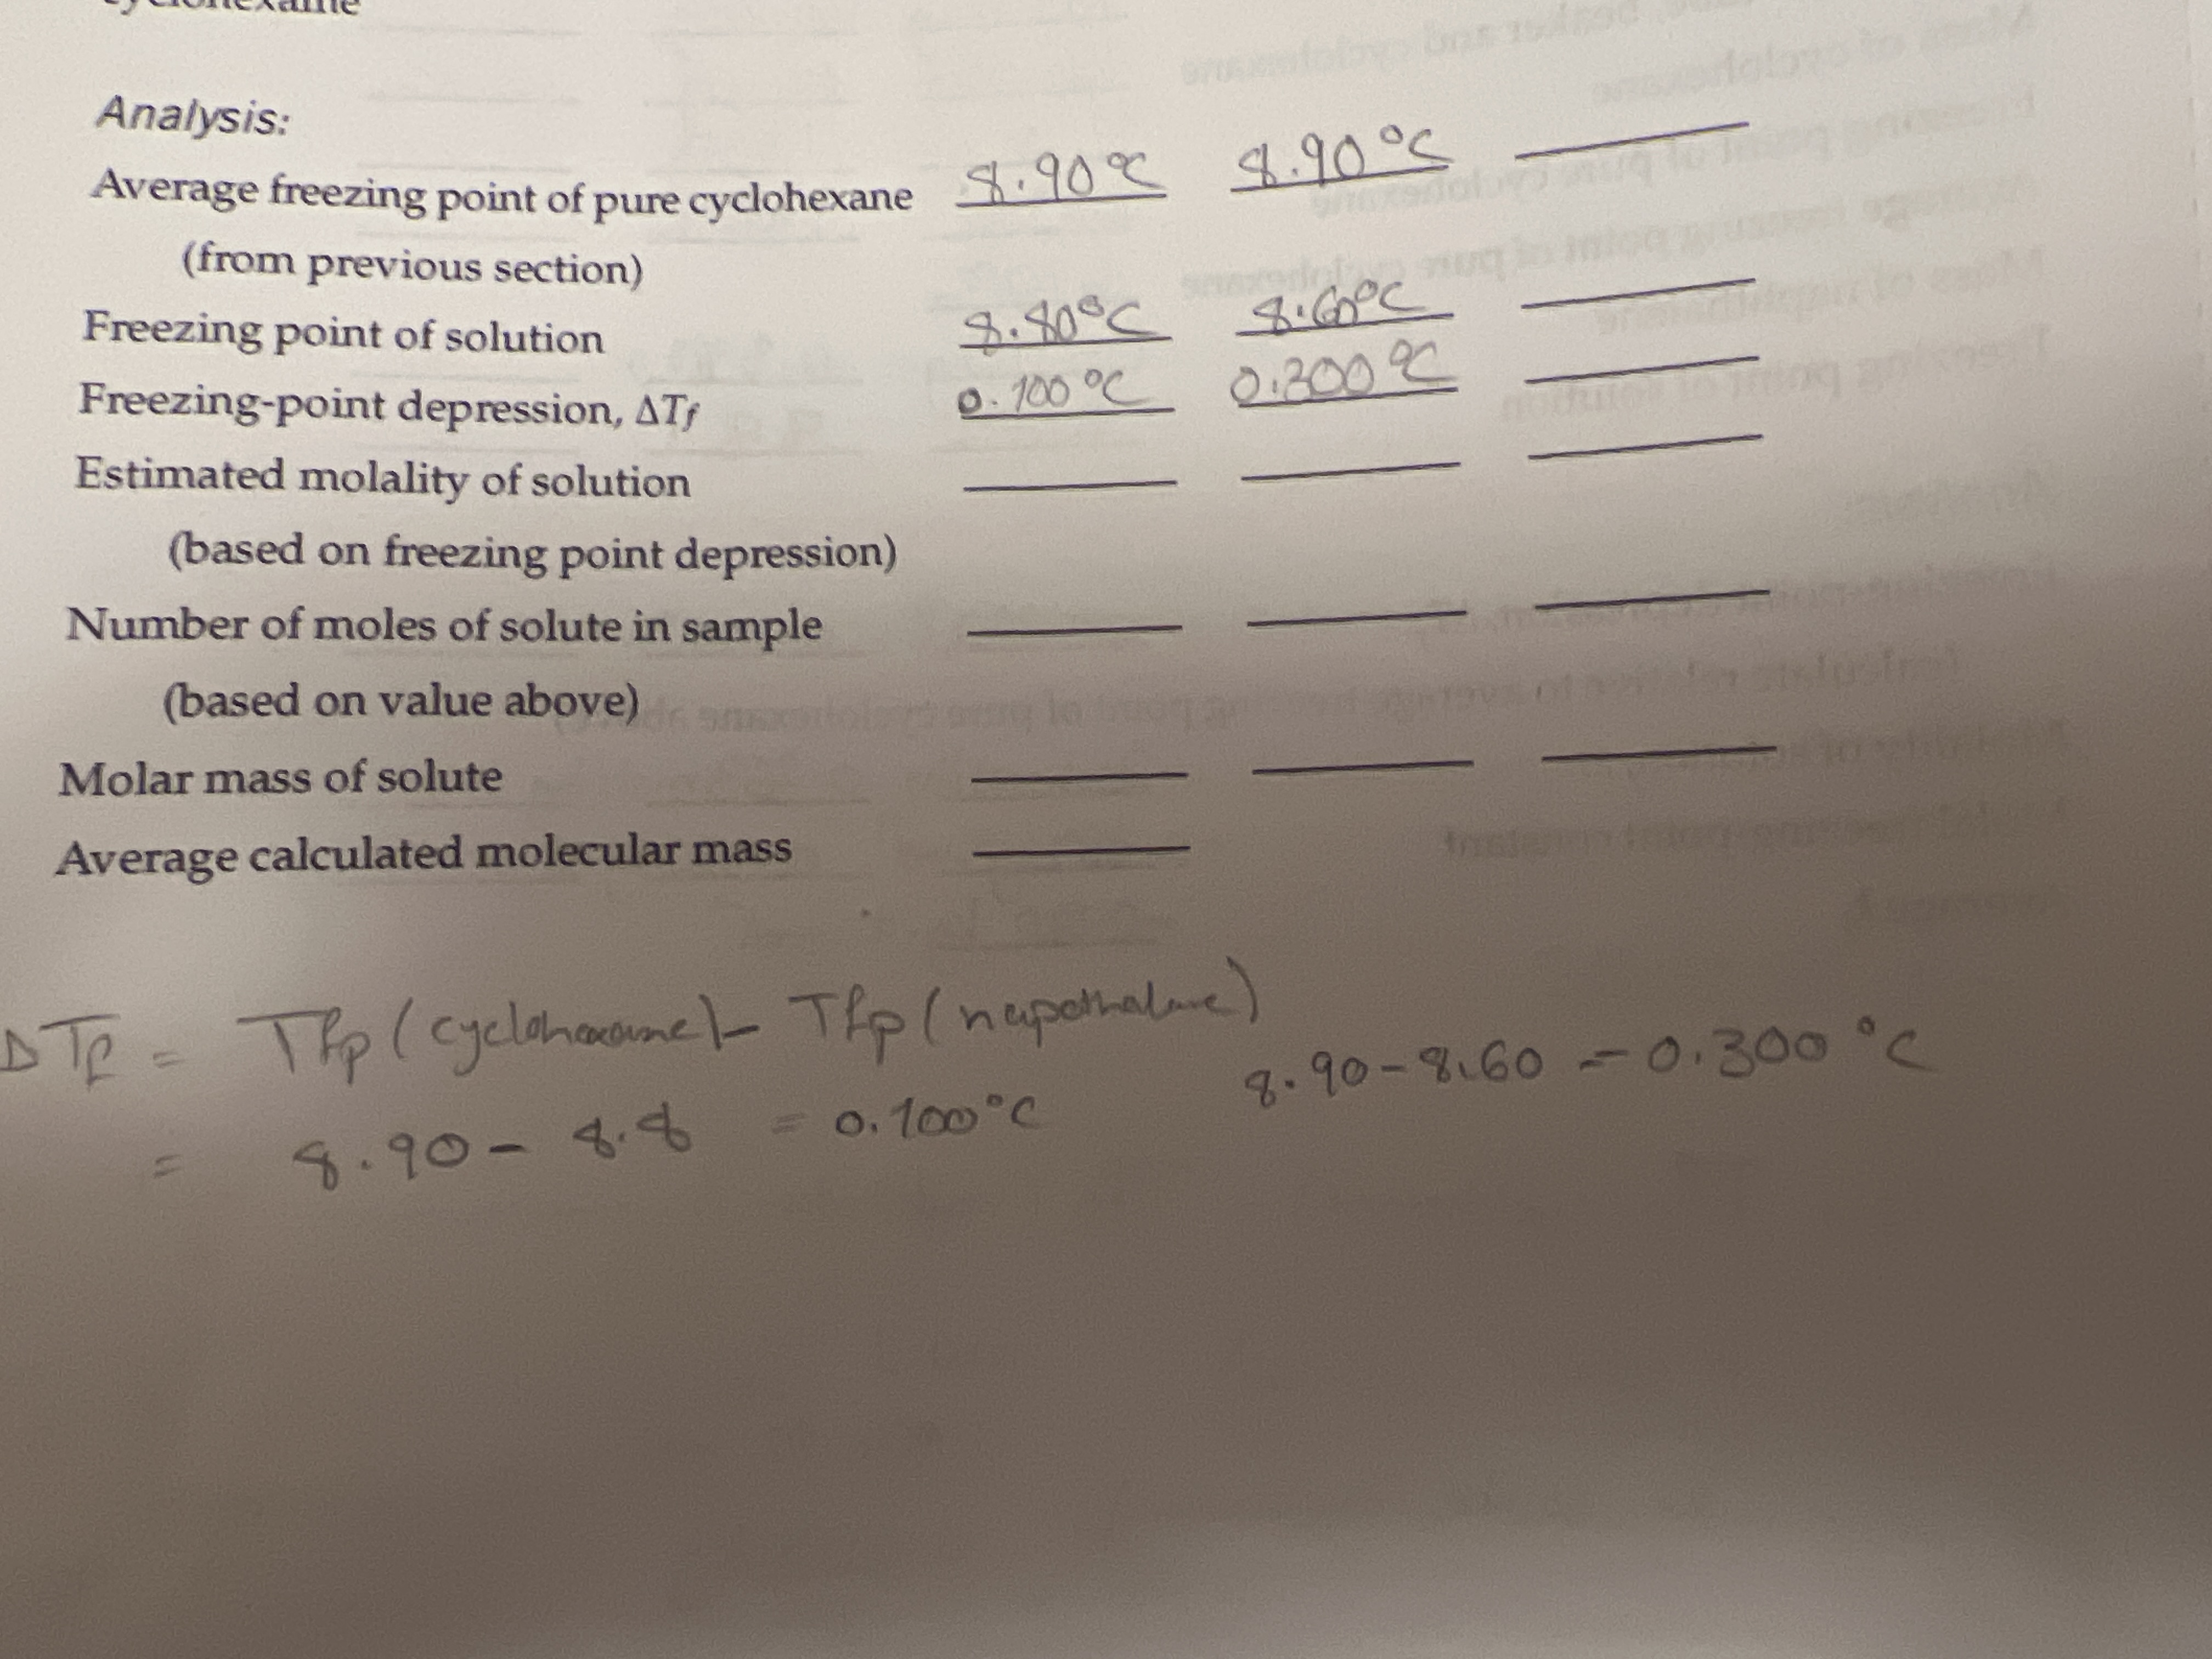 cyclohexane
Analysis:
Average freezing point of pure cyclohexane 8.90°C 8.90°C
(from previous section)
Freezing point of solution 8.80°C 8.60°C
Freezing-point depression, ΔTf 0.100°C 0.300°C
Estimated molality of solution
(based on freezing point depression)
Number of moles of solute in sample
(based on value above)
Molar mass of solute
Average calculated molecular mass
ΔTf = Tfp (cyclohexane) - Tfp (
= 8.90 - 8.8 = 0.100°C 8.90 - 8.60 = 0.300°C